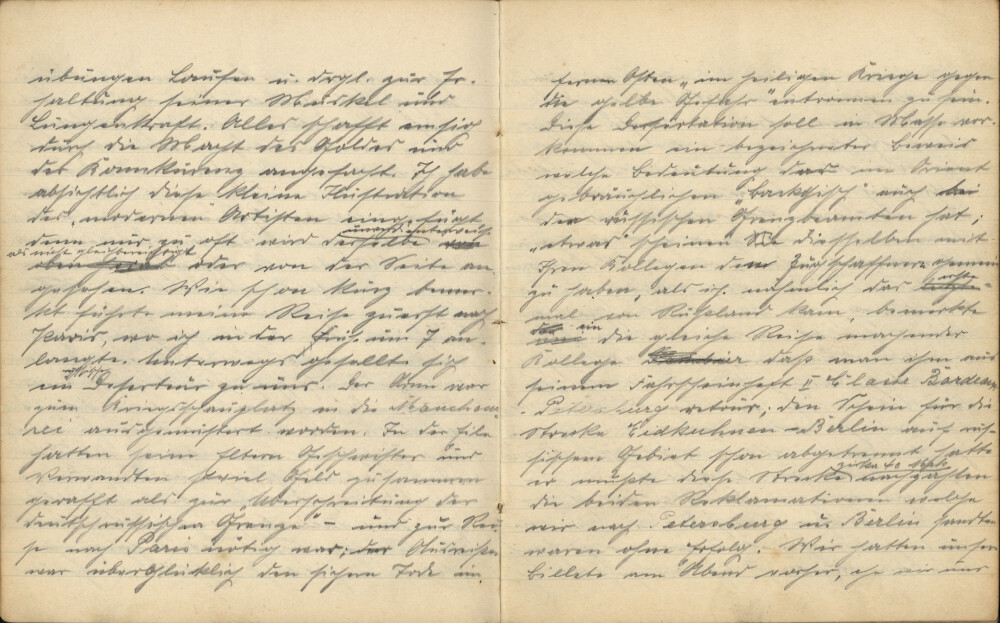 übungen Laufen u. drgl. zur Er-
haltung seiner Muskel und
Lungenkraft. Alles schafft emsig
durch die Macht des Goldes und
der Konnkurenz angefacht. Ich habe
absichtlich diese kleine Illustration
des „modernen" Artisten eingefügt
denn nur zu oft wird derselbe
als nicht gleichberechtigt
oder von der Seite an-
gesehen. Wie schon kurz bemer-
kt führte meine Reise zuerst nach
Paris, wo ich in der Früh um 7 an-
langte. Unterwegs gesellte sich
ein Deserteur zu uns. Der Mann war
zum Kriegsschauplatz in die Mandchu-
rei ausgemustert worden. In der Eile
hatten seine Eltern Geschwister und
Verwandten soviel Geld zusammen
gerafft als zur „Überschreitung der
deutschrussischen Grenze" – und zur Rei-
se nach Paris nötig war; der Ausreißer
war überglücklich den sichern Tode im
fernen Osten „im heiligen Kriege gegen
die gelbe Gefahr" entronnen zu sein.
Diese Desertation soll in Masse vor-
kommen ein bezeichneter Beweis
welche Bedeutung das im Orient
gebräuchlichen „Backschisch" auch bei
den russischen Grenzbeamten hat;
„etwas" scheinen die diesselben mit
Ihren Kollegen den Zugschaffnern gemein
zu haben, als ich nähmlich das
mal von Rußland kam, bemerkte
ein die gleiche Reise machender
Kollege daß man ihm aus
seinem Fahrscheinheft II Classe Bordeaux
- Petersburg retour, den Schein für die
Strecke Eidkuhnen – Berlin auf rus-
sischem Gebiet schon abgetrennt hatte
er mußte diese Strecke nachzahlen
die beiden Reklamationen welche
wir nach Petersburg u. Berlin sandten
waren ohne Erfolg. Wir hatten unsere
Billete am Abend vorher, ehe wir uns